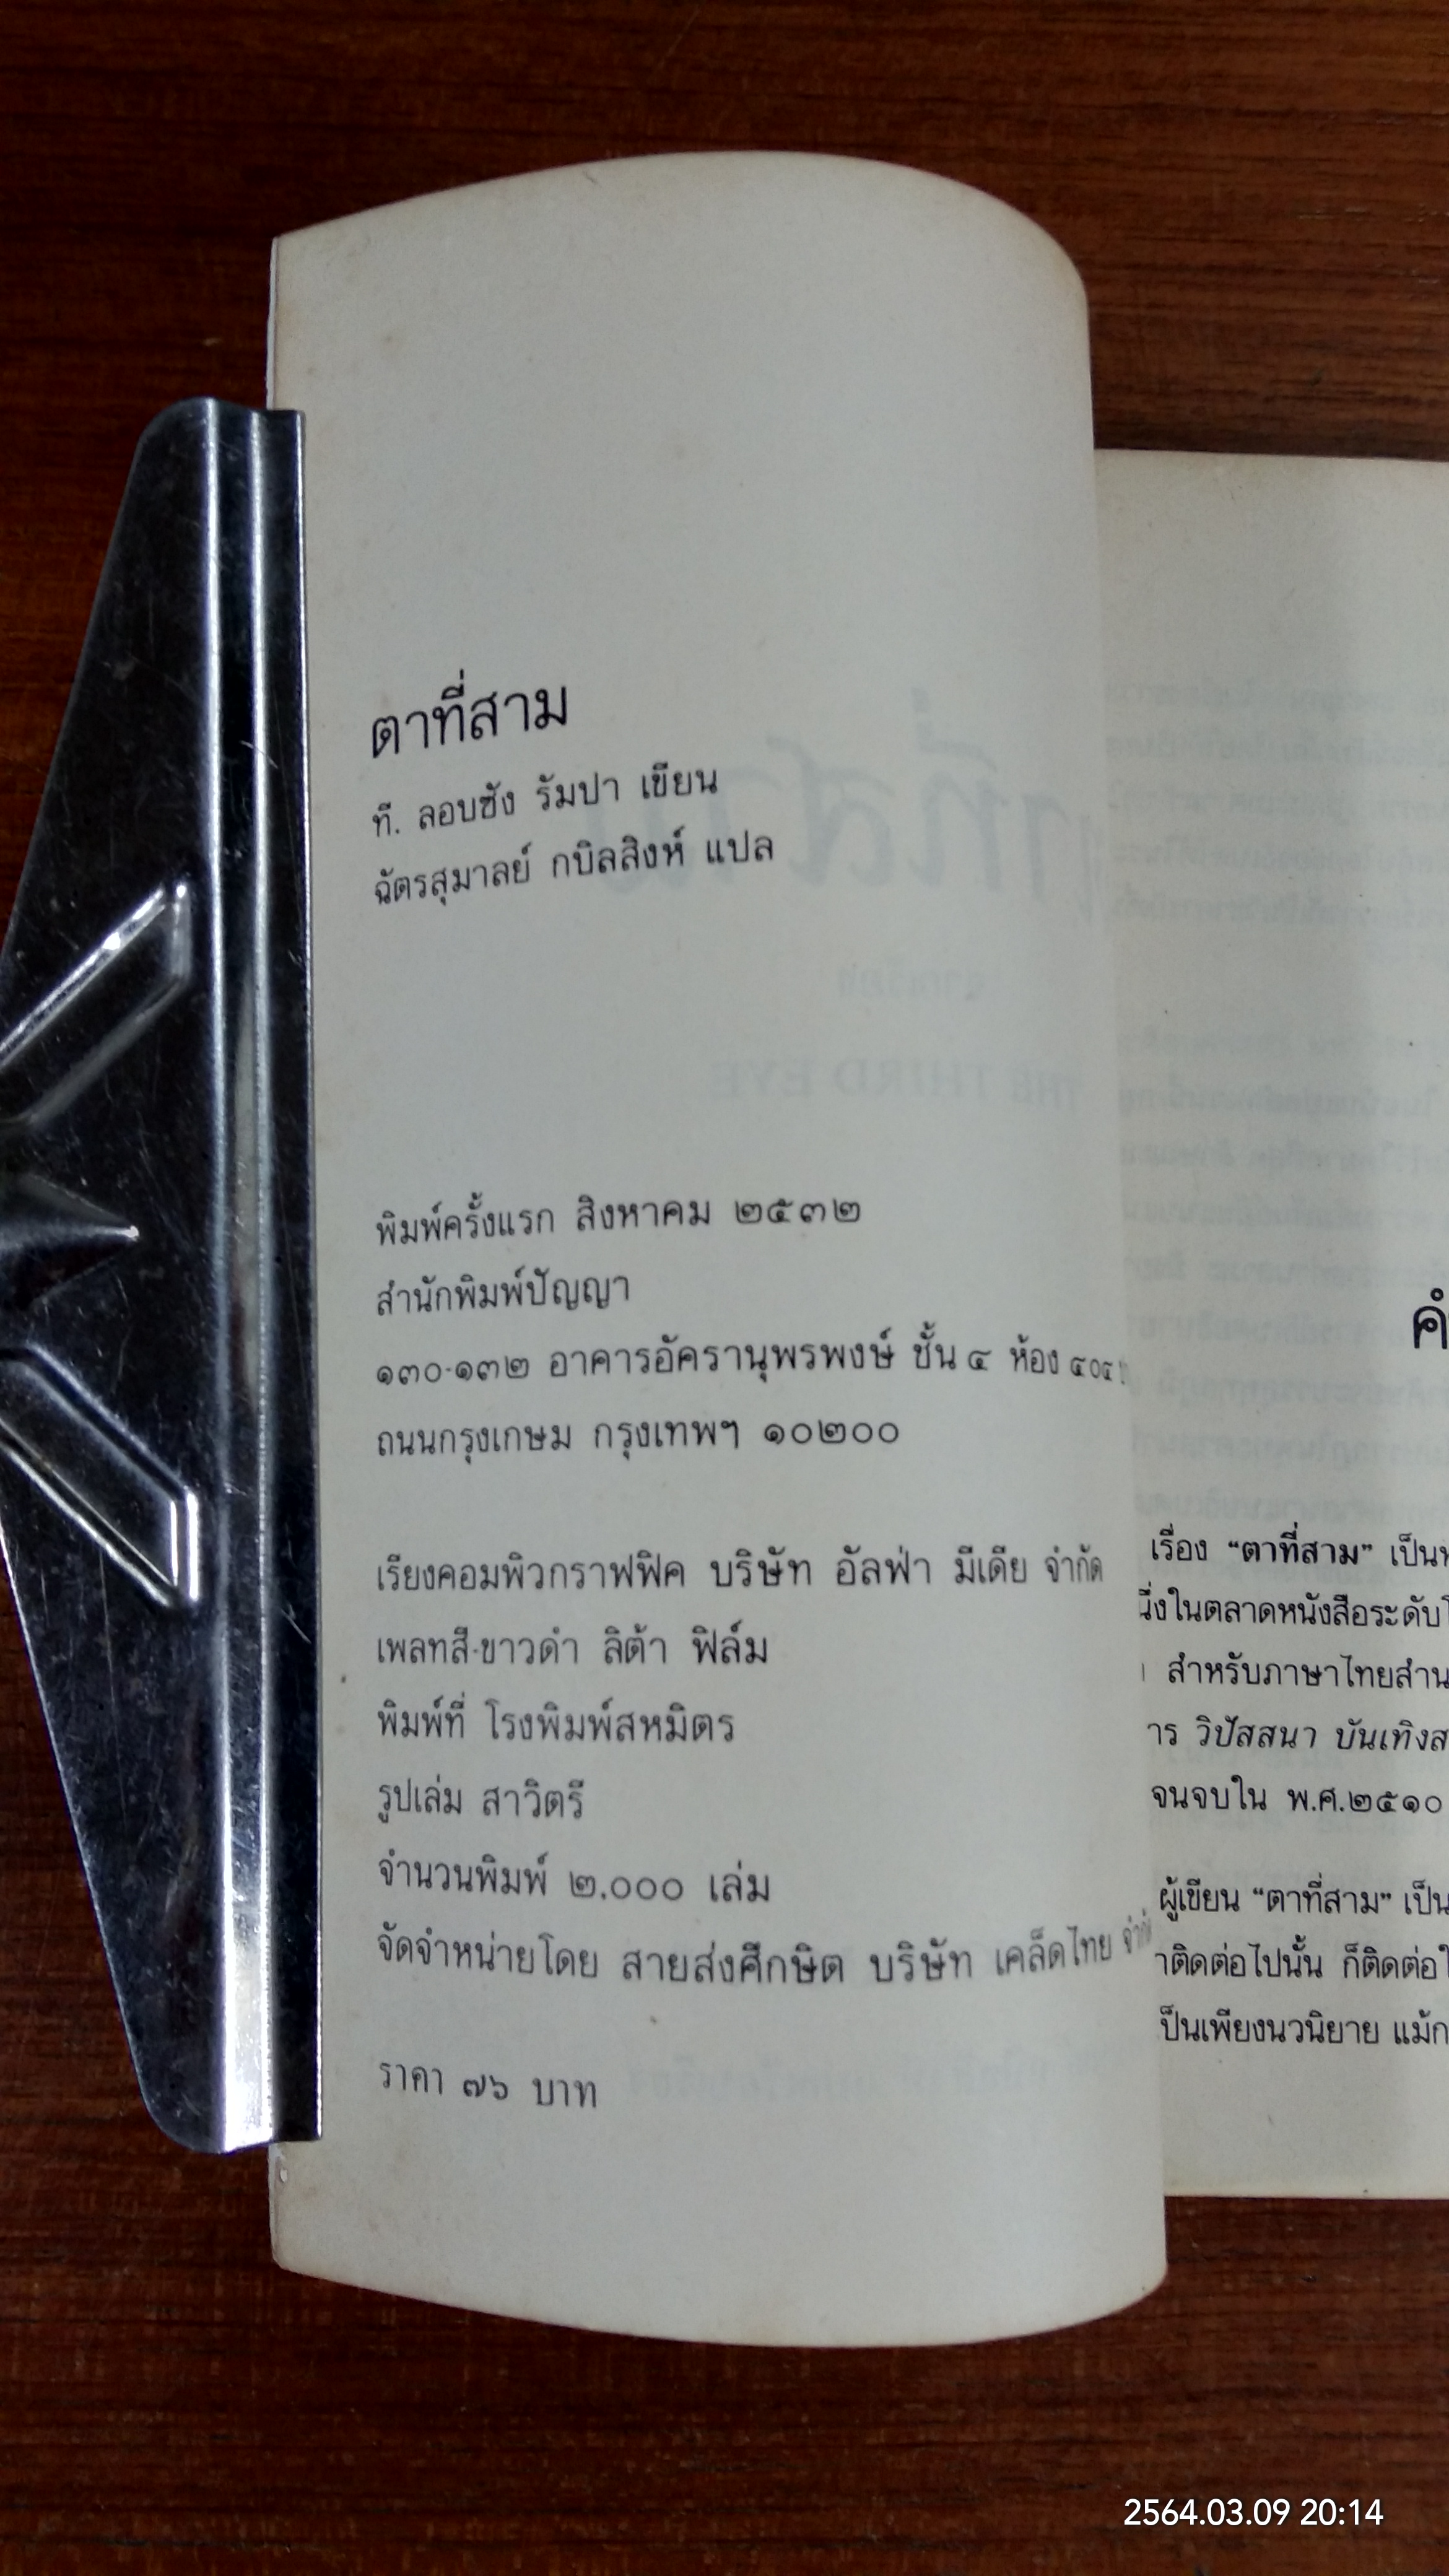 ตาที่สาม
ที. ลอบซัง รัมปา เขียน
ฉัตรสุมาลย์ กบิลสิงห์ แปล
พิมพ์ครั้งแรก สิงหาคม ๒๕๓๒
สำนักพิมพ์ปัญญา
๑๓๐-๑๓๒ อาคารอัครานุพรพงษ์ ชั้น ๔ ห้อง
ถนนกรุงเกษม กรุงเทพฯ ๑๐๒๐๐
เรียงคอมพิวกราฟฟิค บริษัท อัลฟ่า มีเดีย จำกัด
เพลทสี-ขาวดำ ลิต้า ฟิล์ม
พิมพ์ที่ โรงพิมพ์สหมิตร
รูปเล่ม สาวิตรี
จำนวนพิมพ์ ๒,๐๐๐ เล่ม
จัดจำหน่ายโดย สายส่งศึกษิต บริษัท เคล็ดไทย
ราคา ๗๖ บาท
เรื่อง “ตาที่สาม” เป็น
นึ่งในตลาดหนังสือระดับ
สำหรับภาษาไทยสำน
าร วิปัสสนา บันเทิงส
จนจบใน พ.ศ.๒๕๑๐
ผู้เขียน “ตาที่สาม” เป็น
าติดต่อไปนั้น ก็ติดต่อ
ป็นเพียงนวนิยาย แม้ก
2564.03.09 20:14